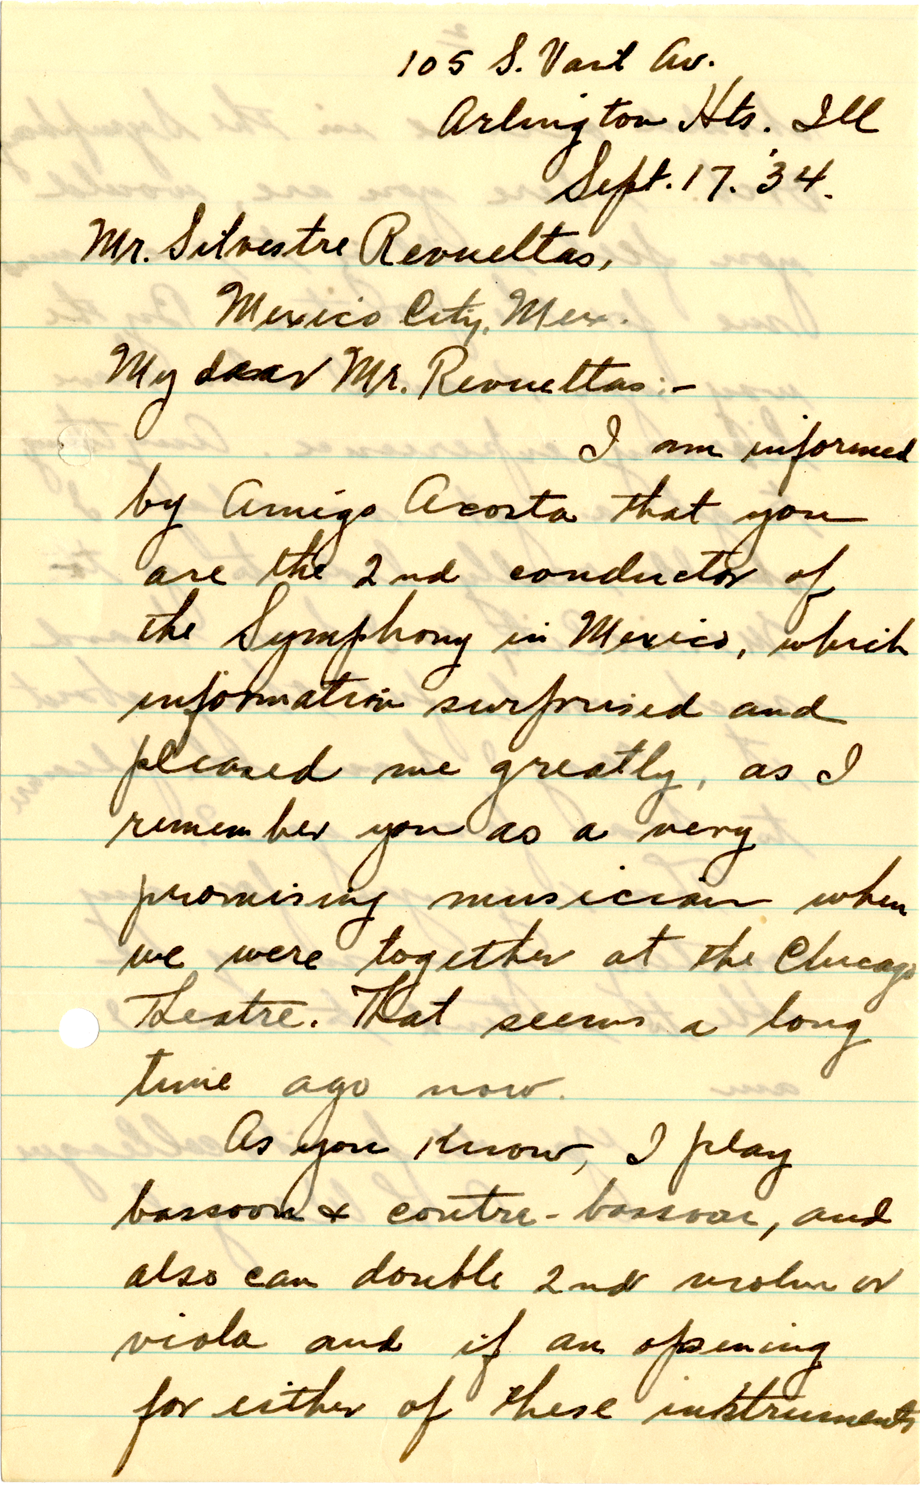 105 S. Vail Av.
Arlington Hts. Ill
Sept. 17. '34.
Mr. Silvestre Revueltas,
Mexico City, Mex.
My dear Mr. Revueltas:-
I am informed
by Amigo Acosta that you
are the 2nd conductor of
the Symphony in Mexico, which
information surprised and
pleased me greatly, as I
remember you as a very
promising musician when
we were together at the Chicago
Theatre. That seems a long
time ago now.
As you know, I play
bassoon & contre-bassoon, and
also can double 2nd violin or
viola and if an opening
for either of these instruments